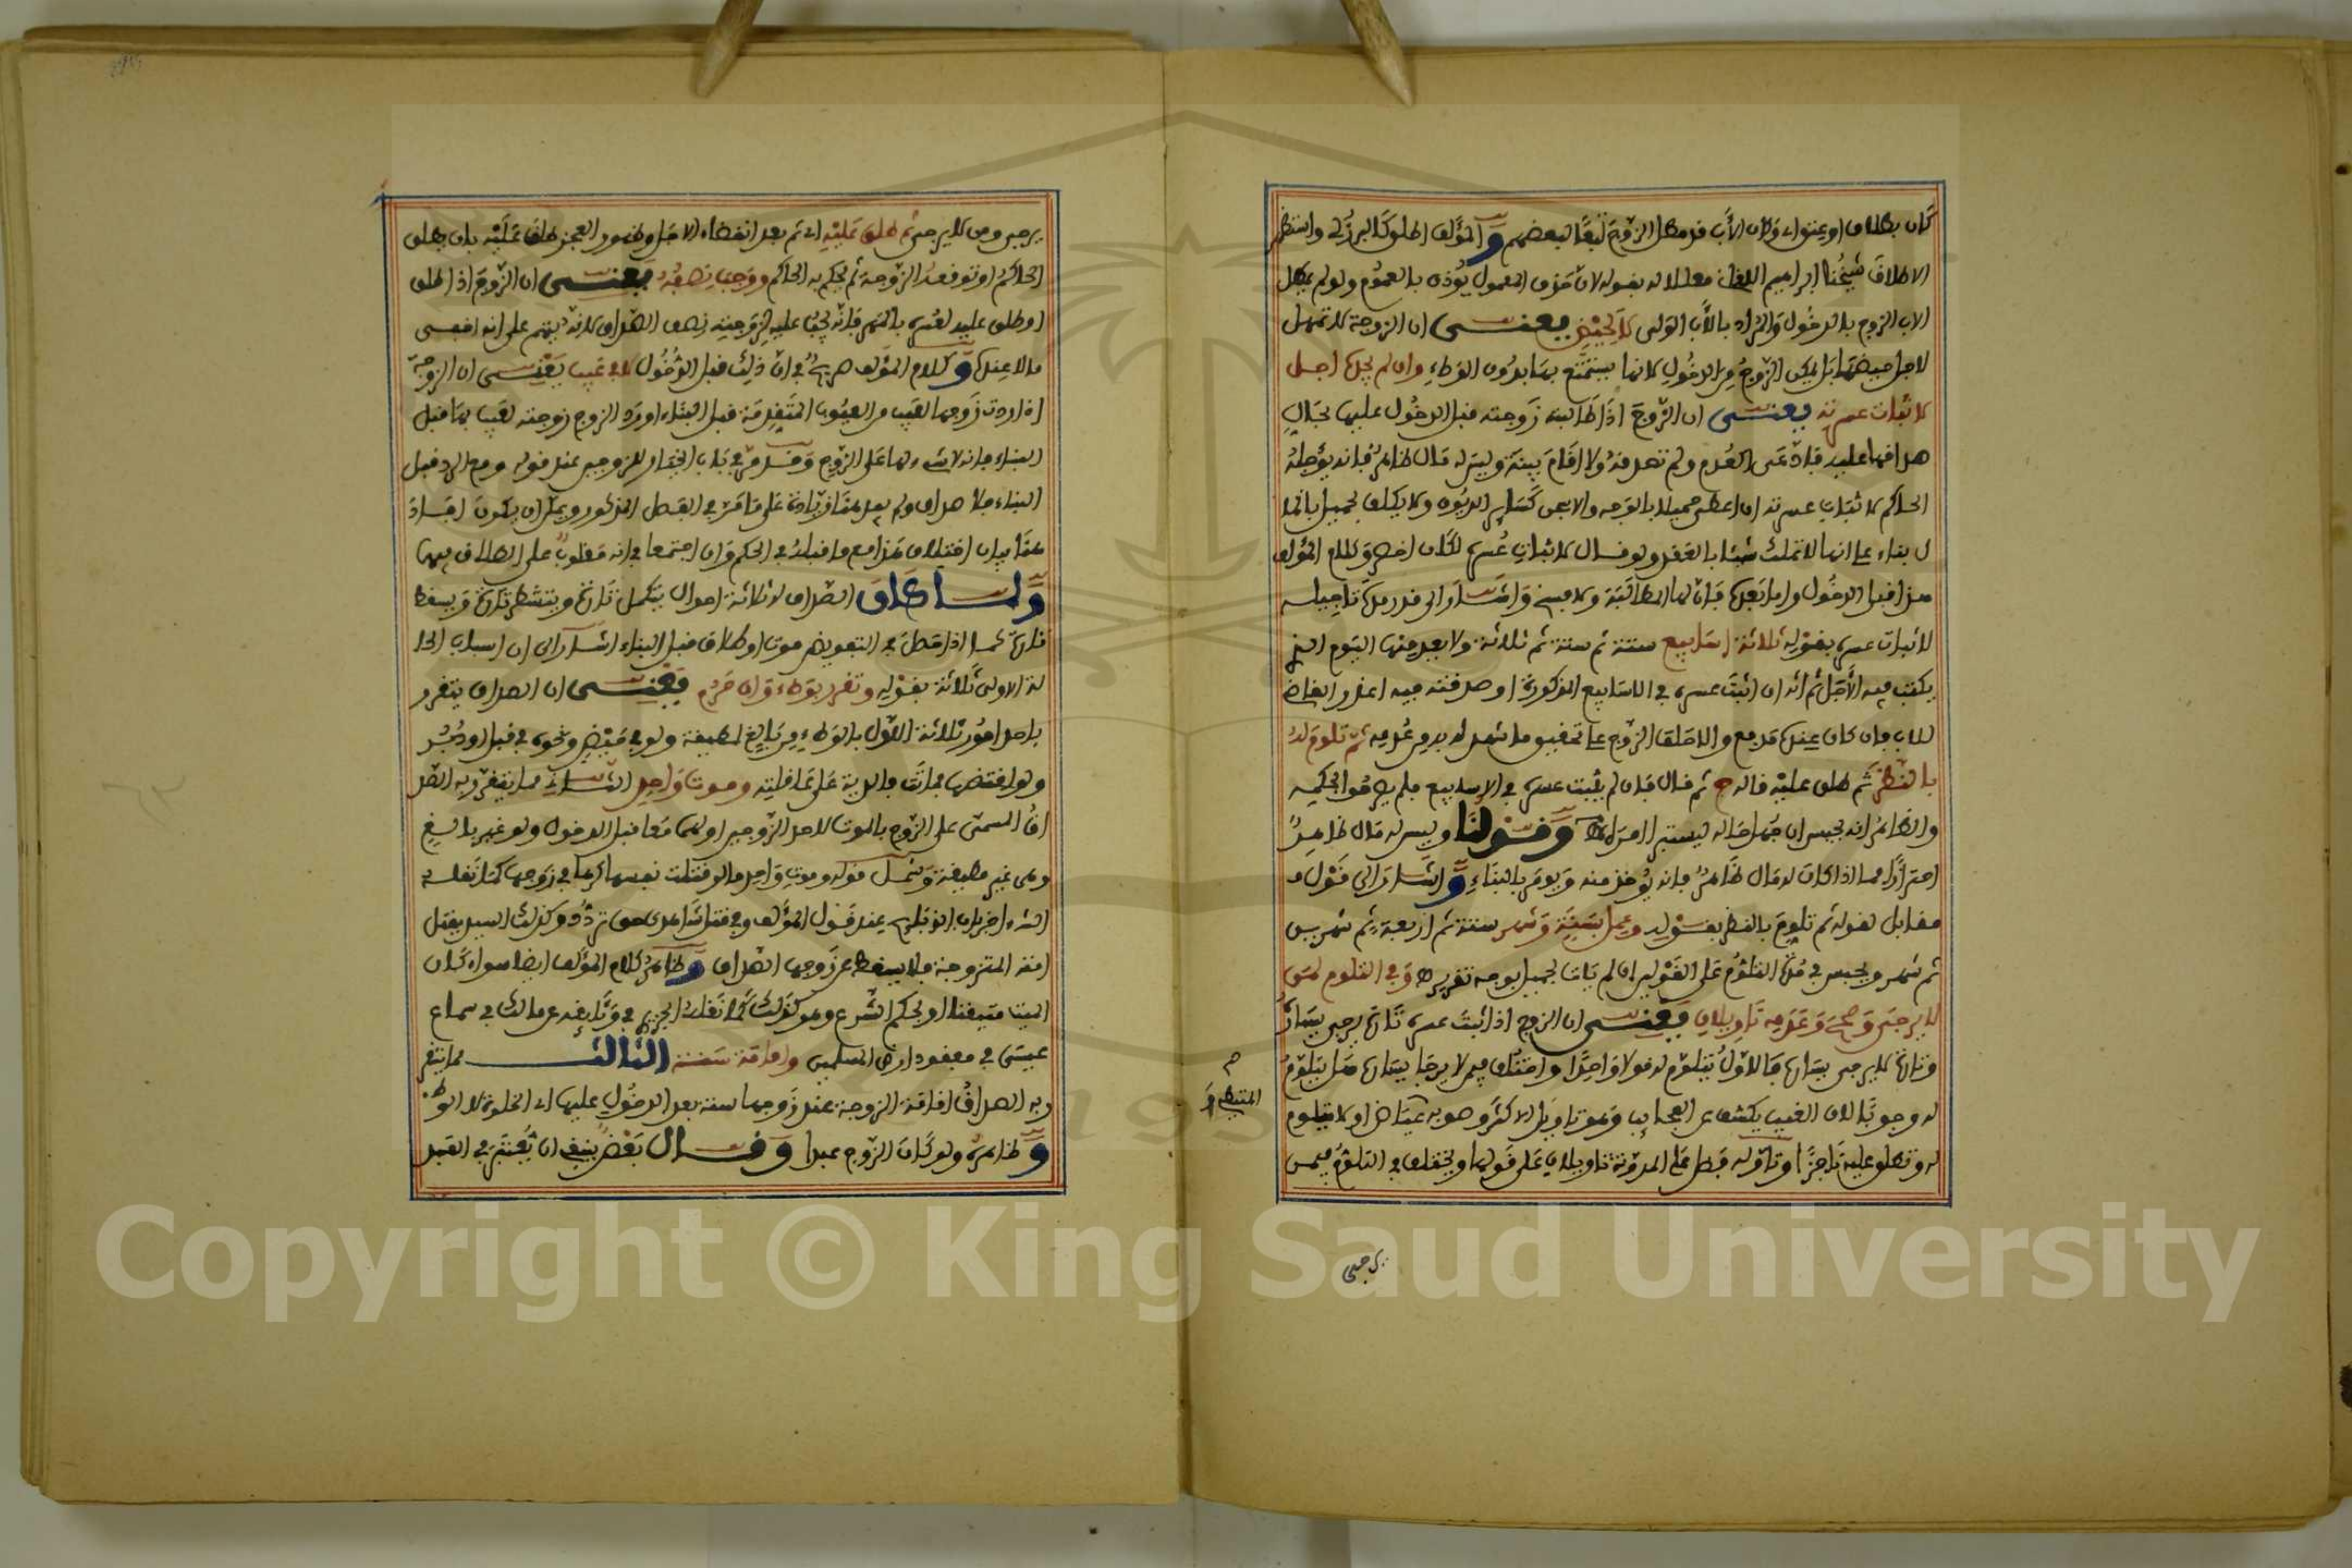 كان بطلاق او بعتق او كان الأب قد مطل الزوج تبعا لبعضهم والمؤلف اطلق كالبرزلي واستظهر
الاطلاق شيخنا ابراهيم اللقاني معللا له بقوله لان حذف المعمول يؤذن بالعموم ولو لم يطل
الاب الزوج بالدخول والمراد بالأب الولي لا لحيض يعنى ان الزوجة لا تمهل
لاجل حيضها بل يمكن الزوج من الدخول لانها يستمتع بها بدون الوطء وان لم يجله اجل
لاثبات عسرته يعنى ان الزوج اذا طالبته زوجته قبل الدخول عليها بحال
صداقها عليه فادعى العدم ولم تصدقه ولا اقام بينة وليس له مال ظاهر فانه يؤجله
الحاكم لاثبات عسرته ان اعطى حميلا بالوجه والا سجن كسائر الديون ولا يكلف بحميل بالما
ل بناء على انها لا تملك شيئا بالعقد ولو قال لاثبات عسره لكان اخصر وكلام المؤلف
هذا قبل الدخول واما بعده فان لها المطالبة ولا فسخ واشار الى قدر مدة تاجيله
لاثبات عسره بقوله ثلاثة اسابيع ستة ثم ستة ثم ثلاثة ولا يعد منها اليوم الذي
يكتب فيه الأجل ثم انه ان اثبت عسره في الاسابيع المذكورة او صدقته فيه اعذر القاضي
للاب فان كان عنده مدفع والا حلف الزوج على تحقيق ما شهد له به من عدمه ثم تلوم له
بالنظر ثم طلق عليه قاله ح ثم قال فان لم يثبت عسره في الاسابيع فلم يصرحوا بحكمه
والظاهر انه يحبس ان جهل حاله ليستبرا امره اه وقولنا وليس له مال ظاهر
احترازا مما اذا كان له مال ظاهر فانه يؤخذ منه ويومر بالبناء واشار الى قول
مقابل لقوله ثم تلوم بالنظر بقوله وعمل بسنة وشهر ستة ثم اربعة ثم شهرين
ثم شهر ويحبس في مدة التلوم على القولين ان لم يات بحميل بوجه تقريره وفي التلوم لمن
لا يرجى وصحح وعدمه تاويلان يعنى ان الزوج اذا ثبت عسره تارة يرجى يساره
وتارة لا يرجى يساره فالاول يتلوم له قولا واحدا واختلف فيمن لا يرجا يساره هل يتلوم
له وجوبا لان الغيب يكشف عن العجايب وهو تاويل الاكثر وصوبه عياض او لا يتلوم
له وتطلق عليه ناجزا وتاوله فضل على المدونة تاويلان على قولها ويختلف في التلوم فيمن
المتيطي و
يرجى
يرجى ومن لا يرجى ثم طلق عليه اي ثم بعد انقضاء الاجل وظهور العجز طلق عليه بان يطلق
الحاكم او توقعه الزوجة ثم يحكم به الحاكم ووجب نصفه يعنى ان الزوج اذا طلق
او طلق عليه لعسره بالمهر فانه يجب عليه لزوجته نصف الصداق لانه يتهم على انه اخفى
مالا عنده وكلام المؤلف صريح في ان ذلك قبل الدخول لا في عيب يعنى ان الزوجة
اذا ردت زوجها لعيب من العيوب المتقدمة قبل البناء او رد الزوج زوجته لعيب بها قبل
البناء فانه لا شيء لها على الزوج وقد مر في باب الخيار للزوجين عند قوله ومع الرد قبل
البناء فلا صداق ولم يعد هنا زيادة على ما مر في الفصل المذكور ويمكن ان يكون افاد
هنا بيان اختلاف هذا مع ما قبله في الحكم وان اجتمعا في انه مغلوب على الطلاق فيهما
ولما كان الصداق له ثلاثة احوال يتكمل تارة ويتشطر تارة ويسقط
تارة كما اذا حصل في التفويض موت او طلاق قبل البناء اشار الى ان اسباب الحا
لة الاولى ثلاثة بقوله وتقرر بوطء وان حرم يعنى ان الصداق يتقرر
باحد امور ثلاثة الاول بالوطء من بالغ لمطيقة ولو في حيض ونحوه في قبل او دبر
ولو افتضها فماتت فالدية على عاقلته وموت واحد الثاني مما يتقرر به الصد
اق المسمى على الزوج بالموت لاحد الزوجين او لهما معا قبل الدخول ولو غير بالغ
وهي غير مطيقة وشمل قوله وموت واحد ما لو قتلت نفسها كرها في زوجها كما نقله
عند قول المؤلف وفي قتل شاهدي حق تردد وكذلك السيد يقتل
امته المتزوجة فلا يسقط عن زوجها الصداق وظاهر كلام المؤلف ايضا سواء كان
الميت متيقنا او بحكم الشرع وهو كذلك في وثائقه عن مالك في سماع
عيسى في مفقود ارض المسلمين واقامة سنة الثالث مما يتقر
ر به الصداق اقامة الزوجة عند زوجها سنة بعد الدخول عليها اي الخلوة لا الوطء
وظاهره ولو كان الزوج عبدا وقال بعض ينبغي ان يعتبر في العبد